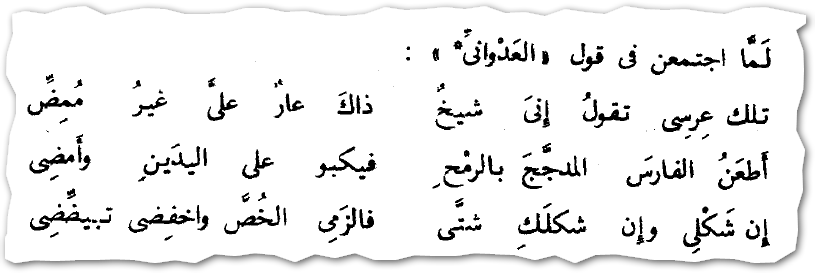 لَمَّا اجتمعن فى قول «العَدْوانىِّ*» :
تلك عِرسِى تقولُ إِنىَ شيخٌ ذاكَ عارٌ علىَّ غيرُ مُمِضِّ
أَطعَنُ الفارسَ المدجَّجَ بالرمْحِ فيكبو على اليدَينِ وأَمضِى
إِن شَكْلِي وإِن شكلَكِ شتَّى فالزَمِى الخُصَّ واخفِضِى تبيضِّضِى